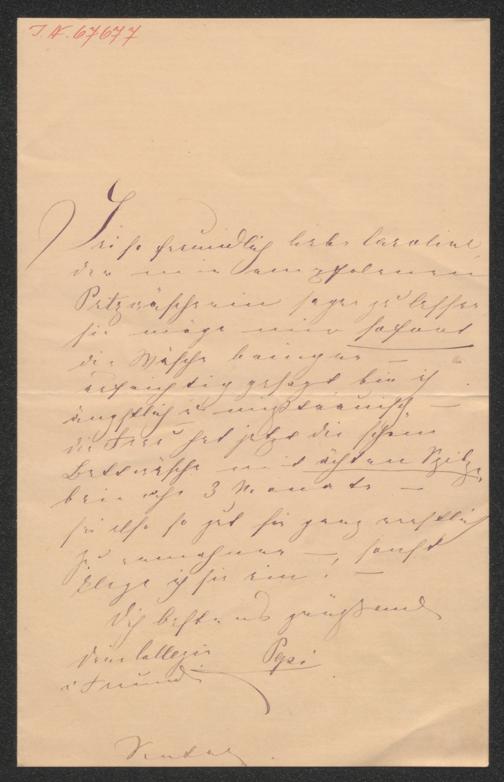 I. N. 67677
Sei so freundlich liebe Caroline,
der mir empfolenen
Putzwäscherin sagen zu lassen
sie möge mir sofort
die Wäsche bringen —
aufrichtig gesagt bin ich
ängstlich u mißtrauisch —
die Frau hat jetzt die schöne
Bettwäsche mit ächten Spitzen
bei 3 Monate —
sei also so gut sie ganz ernstlich
zu ermahnen —, sonst
klage ich sie ein. —
Dich bestens grüßend
deine Collegin Pepi
u Freundin